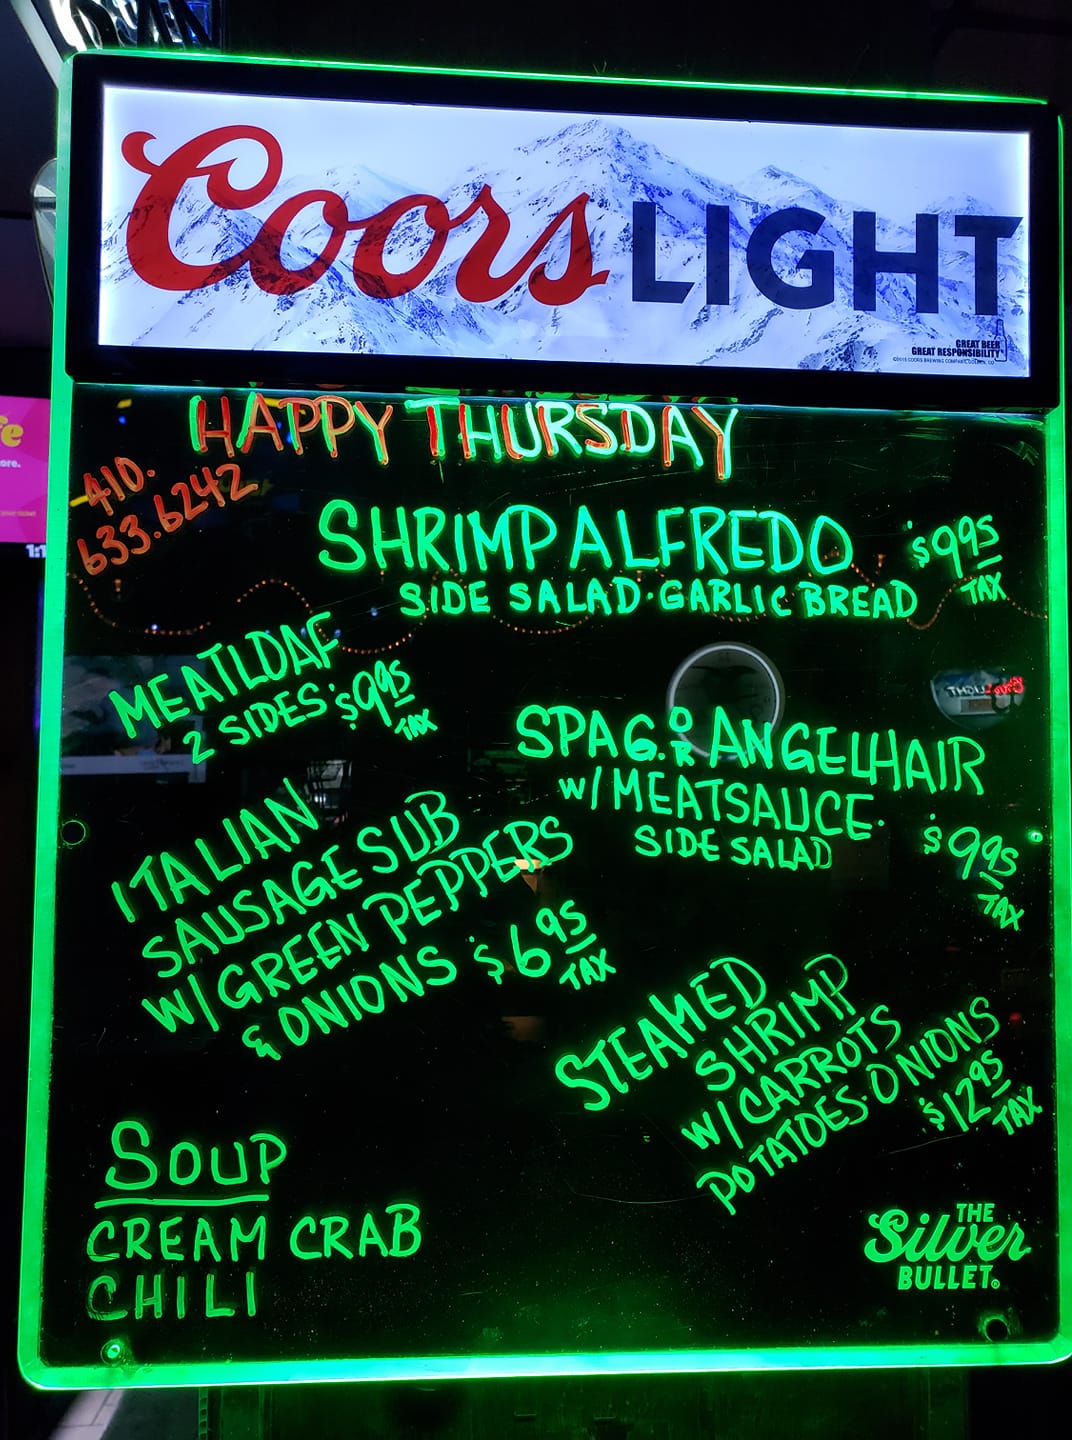 Coors LIGHT
GREAT BEER
GREAT RESPONSIBILITY
©2015 COORS BREWING COMPANY, GOLDEN, CO
HAPPY THURSDAY
410.
633.6242
SHRIMP ALFREDO $9.95
SIDE SALAD·GARLIC BREAD TAX
MEATLOAF
2 SIDES $9.95
TAX
SPAG. OR ANGELHAIR
w/MEATSAUCE·
SIDE SALAD $9.95
TAX
ITALIAN
SAUSAGE SUB
W/GREEN PEPPERS
& ONIONS $6.95
TAX
STEAMED
SHRIMP
W/CARROTS
POTATOES·ONIONS
$12.95
TAX
SOUP
CREAM CRAB
CHILI
THE
Silver
BULLET.